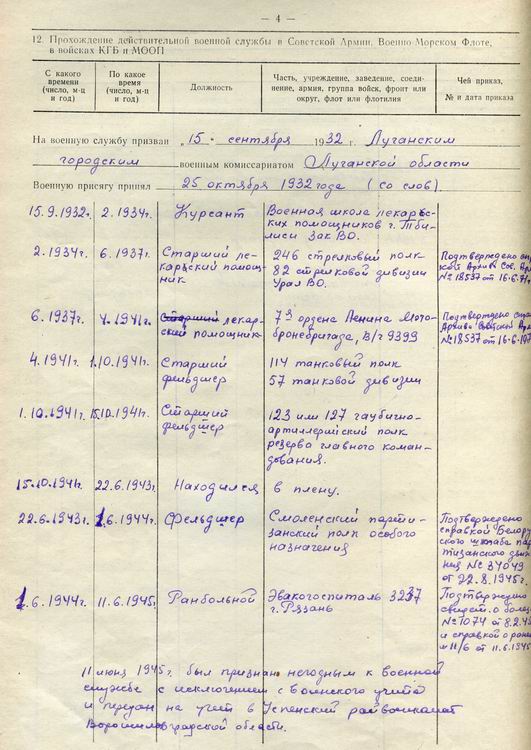 — 4 —
12. Прохождение действительной военной службы в Советской Армии, Военно-Морском Флоте,
в войсках КГБ и МООП
С какого времени (число, м-ц и год)
По какое время (число, м-ц и год)
Должность
Часть, учреждение, заведение, соеди-
нение, армия, группа войск, фронт или
округ, флот или флотилия
Чей приказ,
№ и дата приказа
На военную службу призван „15" сентября 1932 г. Луганским
городским военным комиссариатом Луганской области
Военную присягу принял 25 октября 1932 года (со слов).
15.9.1932г. 2.1934г. Курсант Военная школа лекарс-
ких помощников г. Тби-
лиси Зак ВО.
2.1934г. 6.1937г. Старший ле-
карьский помощ-
ник
246 стрелковый полк
82 стрелковой дивизии
Урал ВО.
Подтверждено
Архива Сов. Ар
№ 18537 от 16.6.71
6.1937г. 4.1941г. Старший лекар-
ский помощник
7я ордена Ленина мото-
бронебригада, В/ч 9399
Подтверждено
Архива Советской Ар
№ 18537 от 16.6.197
4.1941г. 1.10.1941г. Старший
фельдшер
114 танковый полк
57 танковой дивизии
1.10.1941г. 15.10.1941г. Старший
фельдшер
123 или 127 гаубично-
артиллерийский полк
резерва главного коман-
дования.
15.10.1941г. 22.6.1943г. Находился в плену.
22.6.1943г. 1.6.1944г. Фельдшер Смоленский парти-
занский полк особого
назначения
Подтверждено
справкой Белору
ского штаба пар
тизанского движ
ния № 34049
от 22.8.1945г.
1.6.1944г. 11.6.1945г. Ранбольной Эвакогоспиталь 3237
г. Рязань
Подтверждено
свидет. о болез
№ 1074 от 8.2.4
и справкой о ране
№ 11/6 от 11.6.1945
11 июня 1945г. был признан негодным к военной
службе с исключением с воинского учета
и передан на учет в Успенский райвоенкомат
Ворошиловградской области.